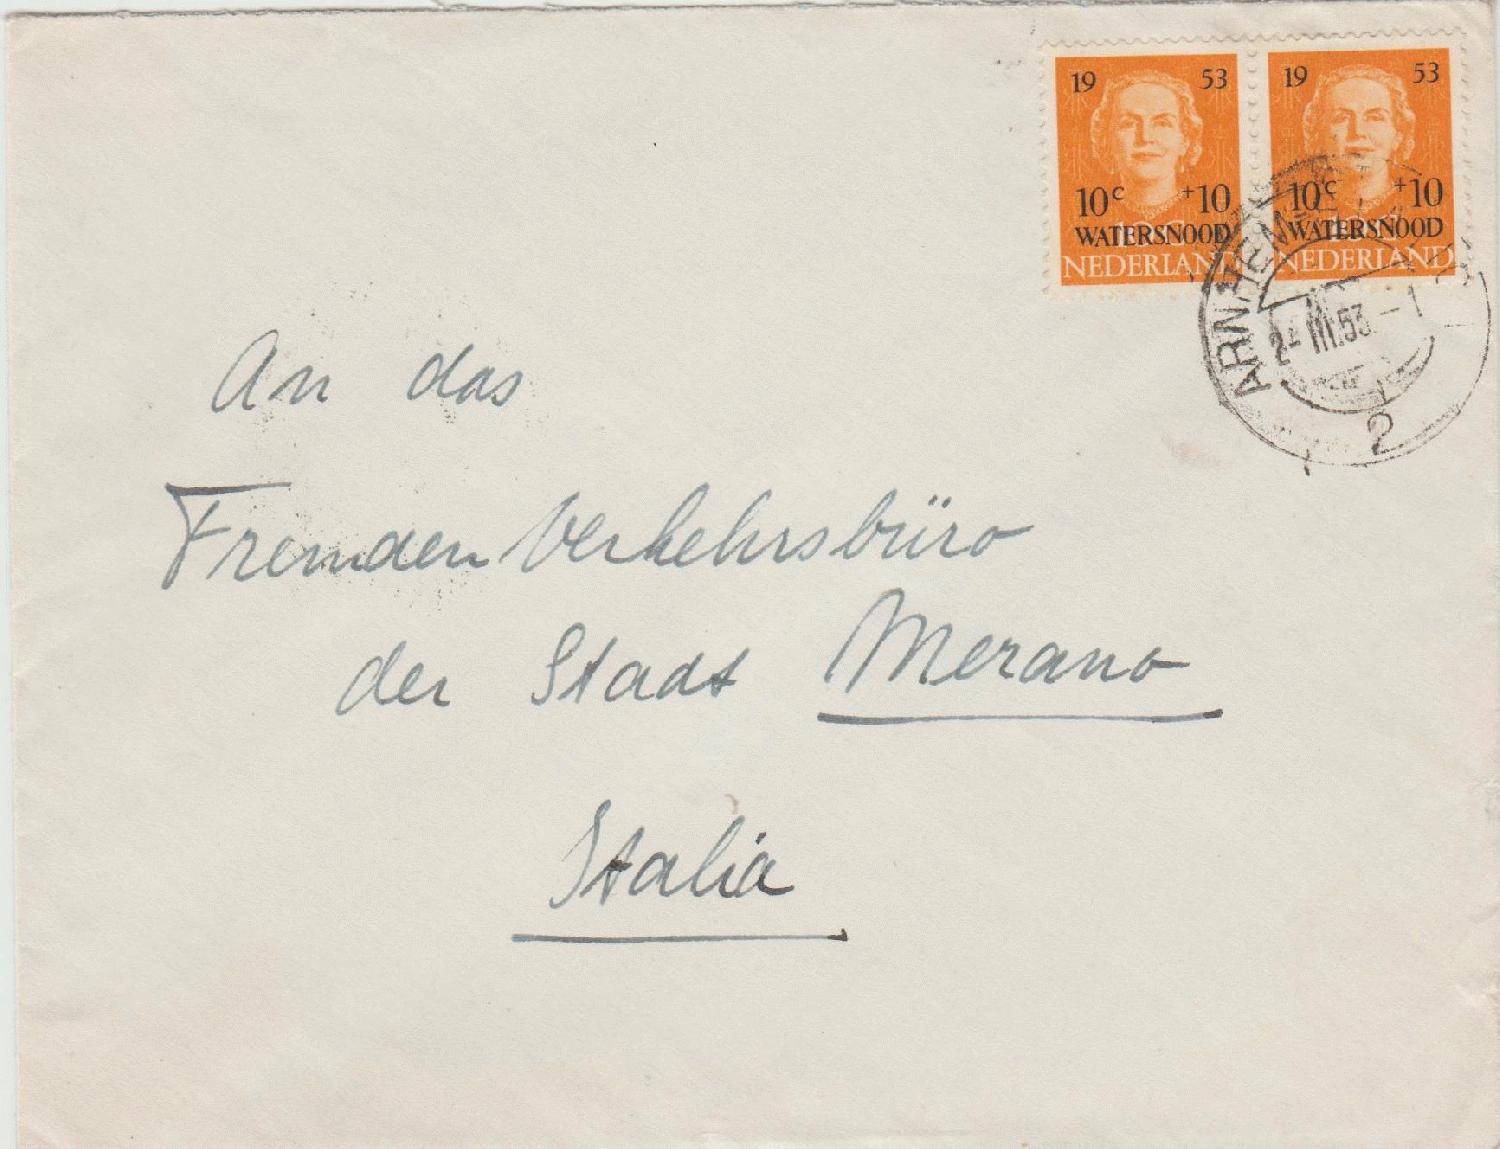 19 53
10c +10
WATERSNOOD
NEDERLAND
19 53
10c +10
WATERSNOOD
NEDERLAND
ARNHEM
2-III.53.-1
2
An das
Fremden Verkehrsbüro
der Stadt Merano
Italia